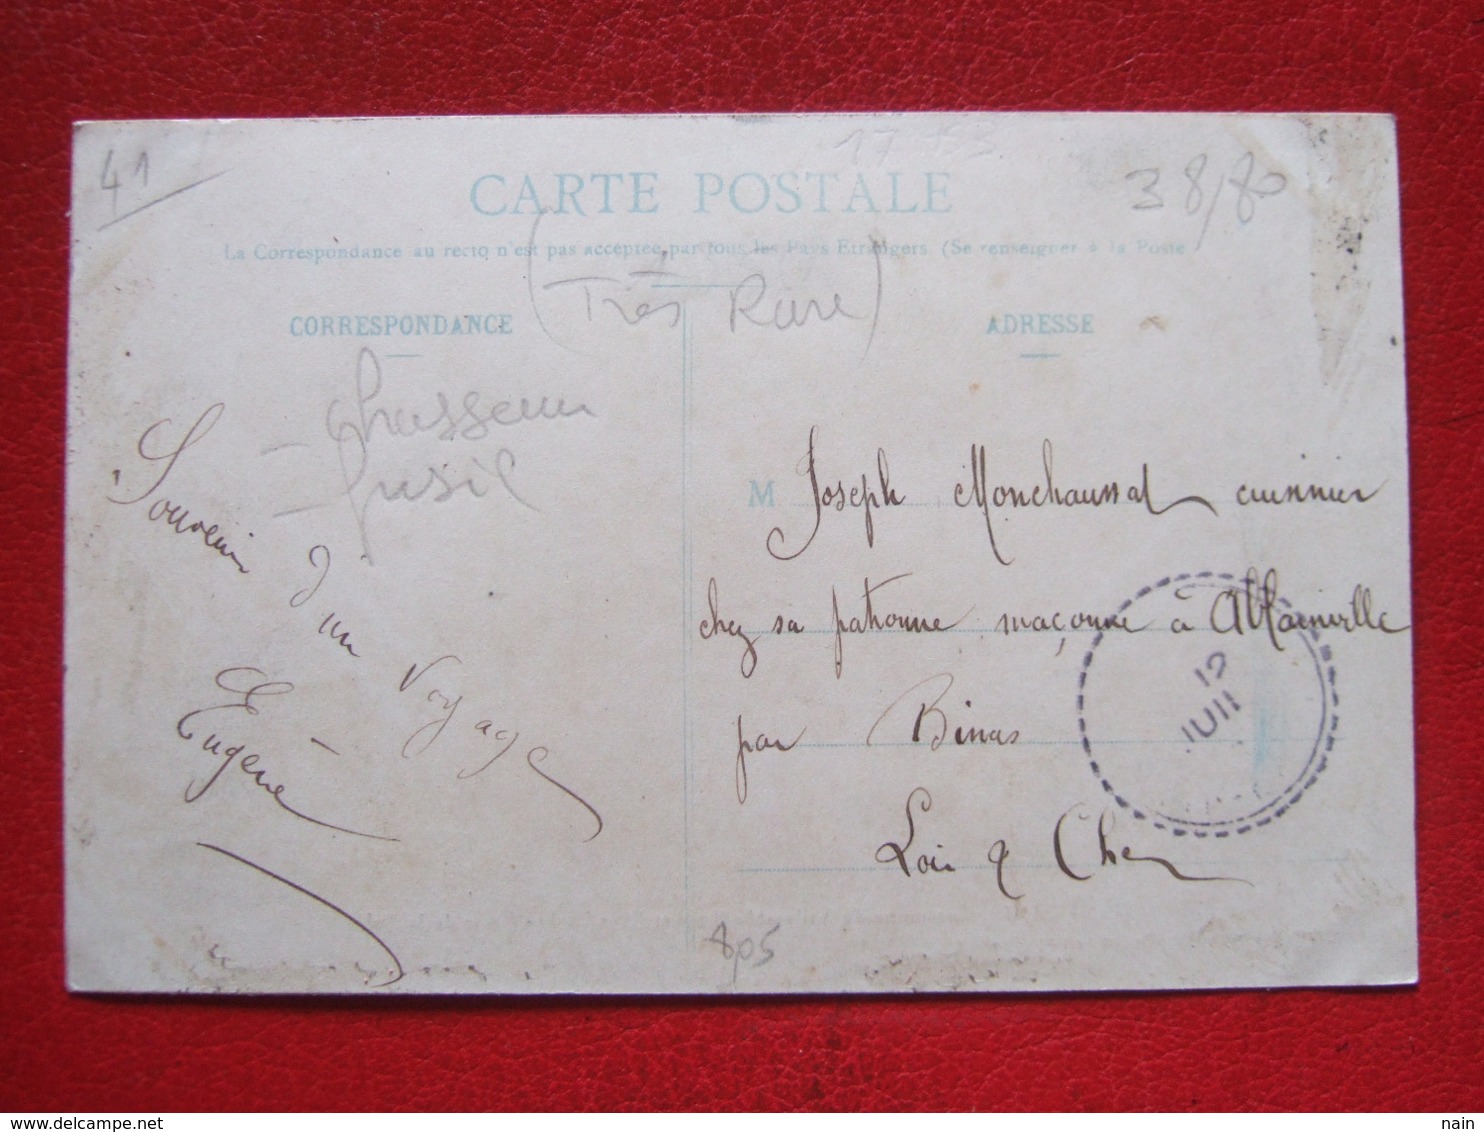 41
38/80
CARTE POSTALE
La Correspondance au recto n'est pas acceptée par tous les Pays Étrangers. (Se renseigner à la Poste
(Très Rare)
CORRESPONDANCE
- chasseur
- fusil
Souvenir
d'un
voyage
Eugène
ADRESSE
M Joseph Monchaussat cuisinier
chez sa patronne maçonne à Ablainville
par Binas
Loir & Cher
12
JUII
805
delcampe.net
nain